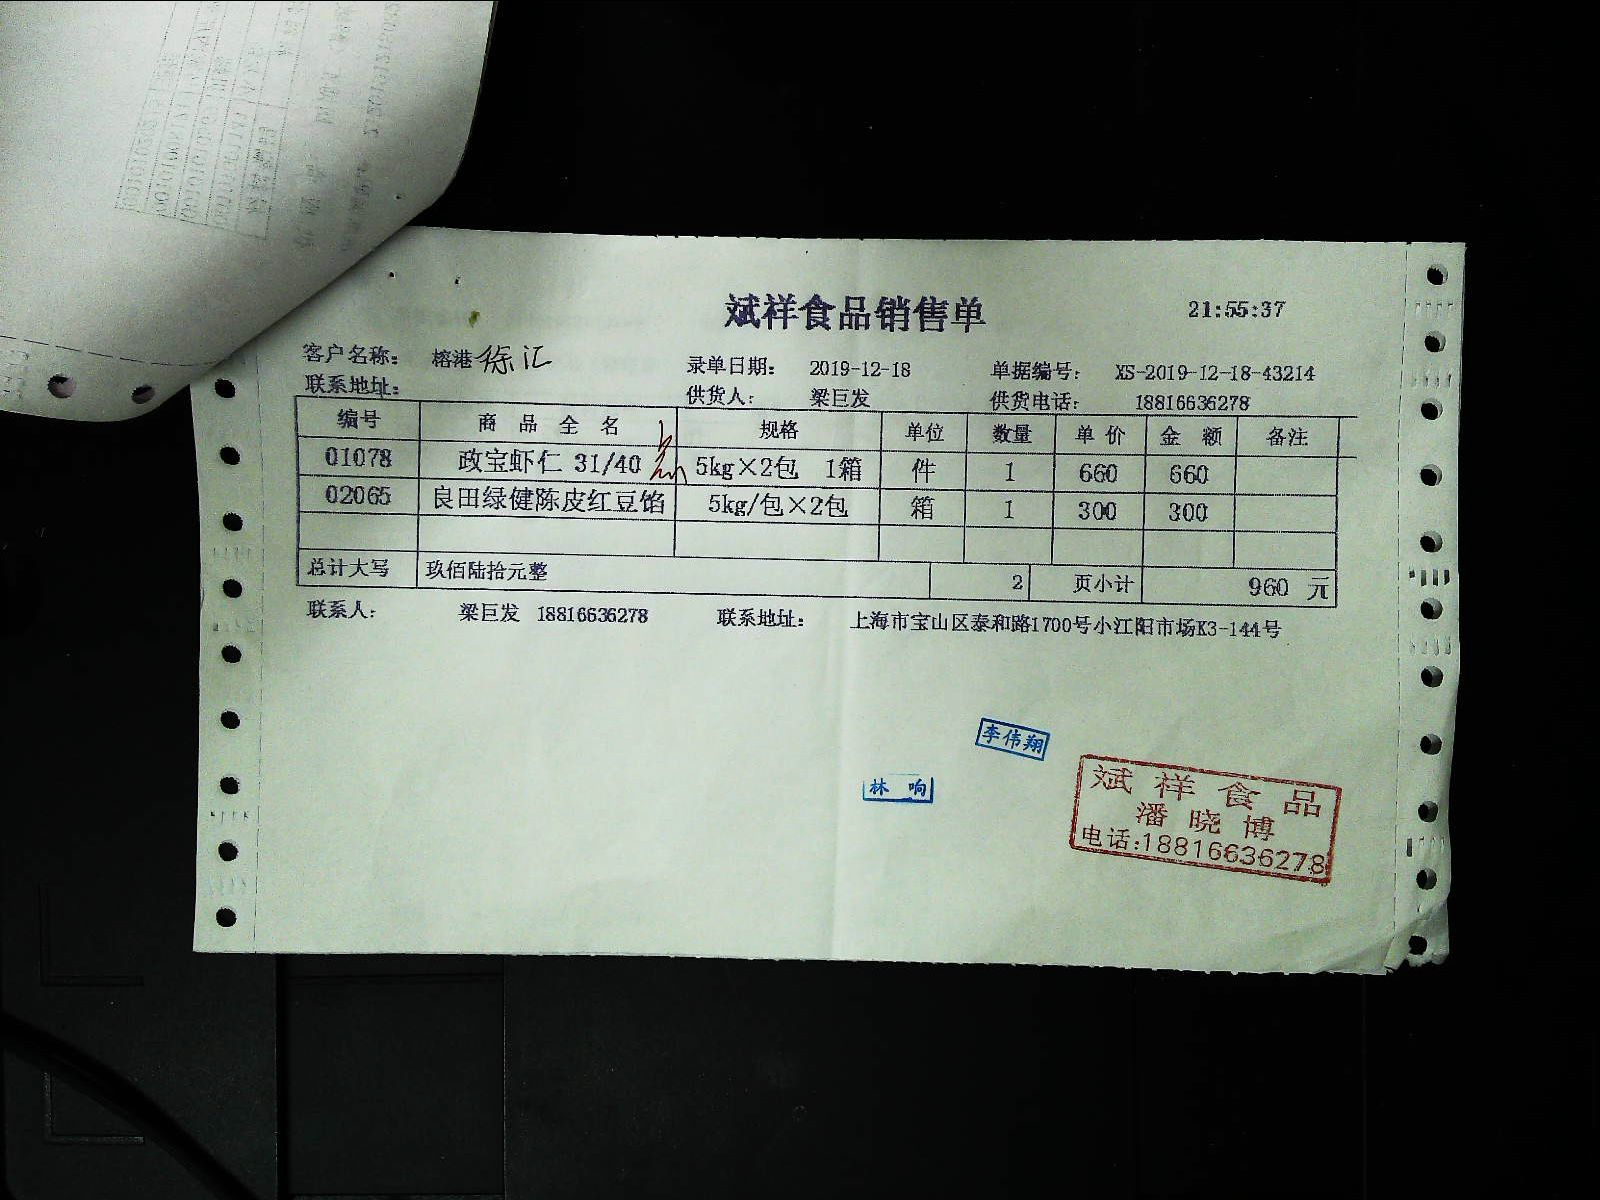 斌祥食品销售单 21:55:37
客户名称： 榕港 徐汇 录单日期： 2019-12-18 单据编号： XS-2019-12-18-43214
联系地址： 供货人： 梁巨发 供货电话： 18816636278
编号 商品全名 规格 单位 数量 单价 金额 备注
01078 政宝虾仁 31/40 5kg×2包 1箱 件 1 660 660
02065 良田绿健陈皮红豆馅 5kg/包×2包 箱 1 300 300
总计大写 玖佰陆拾元整 2 页小计 960 元
联系人： 梁巨发 18816636278 联系地址： 上海市宝山区泰和路1700号小江阳市场K3-144号
李伟翔
林响
斌祥食品
潘晓博
电话:18816636278